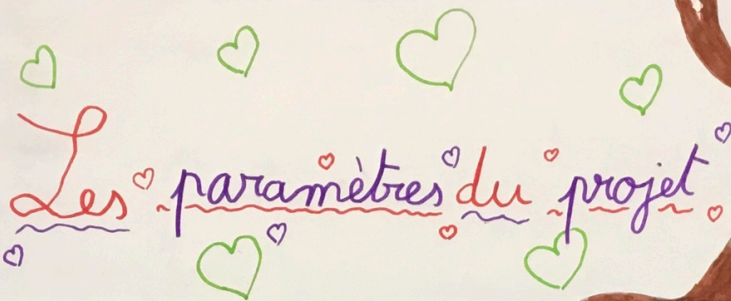 Les paramètres du projet